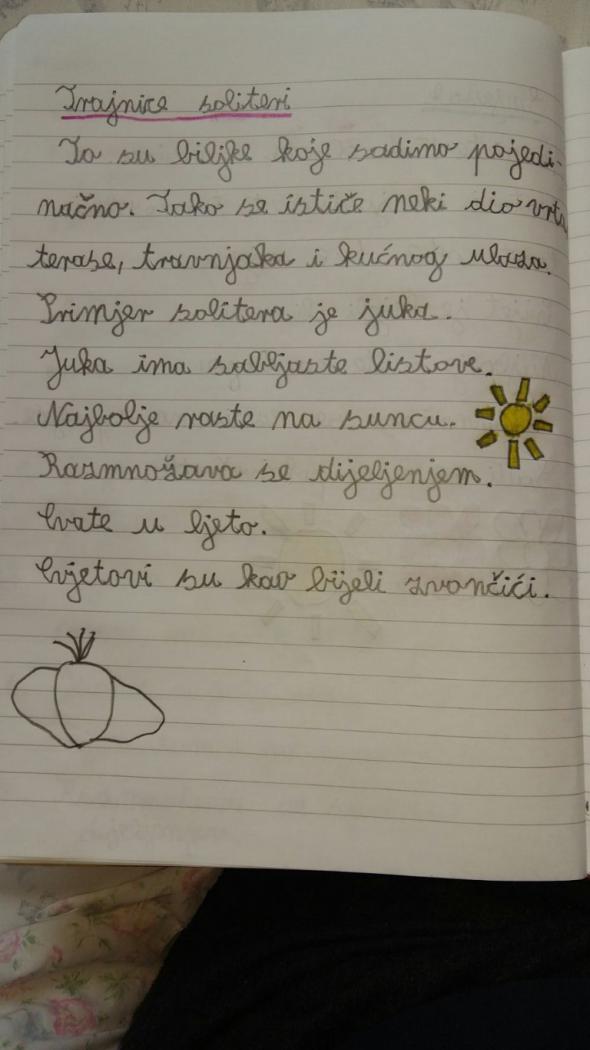 Trajnice soliteri
To su biljke koje sadimo pojedi-
načno. Tako se ističe neki dio vrta
terase, travnjaka i kućnog ulaza.
Primjer solitera je juka.
Juka ima sabljaste listove.
Najbolje raste na suncu.
Razmnožava se dijeljenjem.
Cvate u ljeto.
Cvjetovi su kao bijeli zvončići.